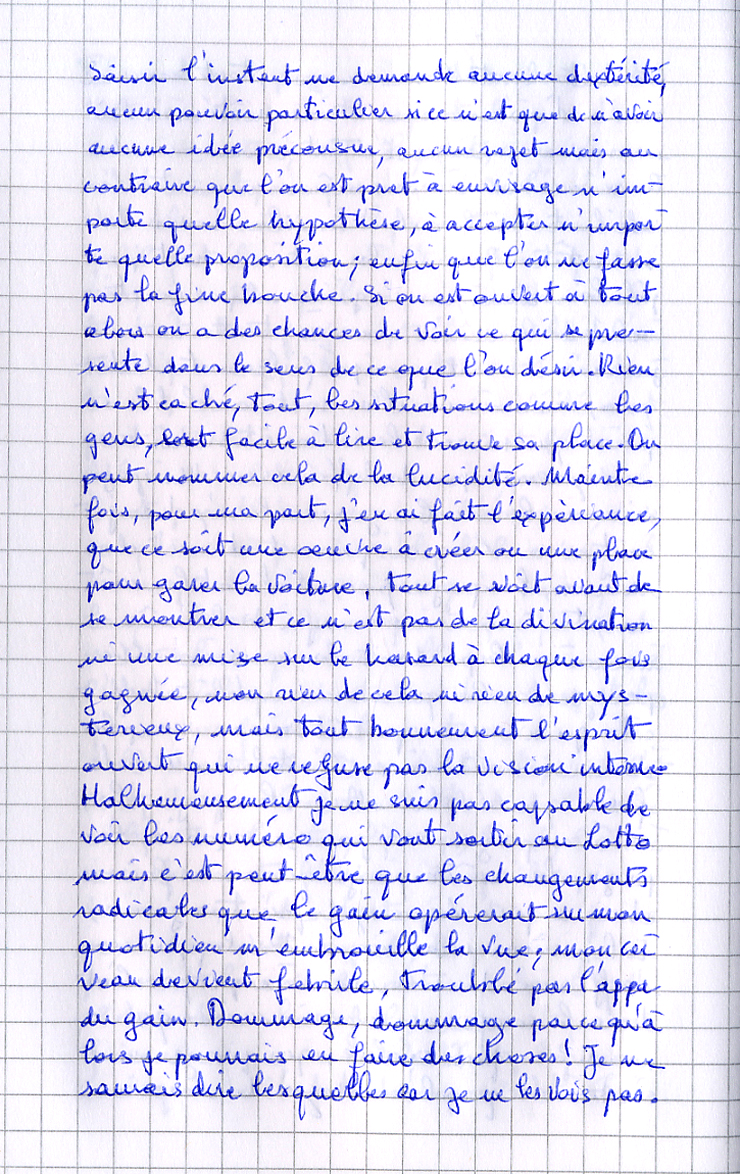 Saisir l'instant ne demande aucune dextérité,
aucun pouvoir particulier si ce n'est que de n'avoir
aucune idée préconsue, aucun rejet mais au
contraire que l'on est pret à envisage n'im-
porte quelle hypothèse, à accepter n'impor
te quelle proposition; enfin que l'on ne fasse
pas la fine bouche. Si on est ouvert à tout
alors on a des chances de voir ce qui se pre-
sente dans le sens de ce que l'on désir. Rien
n'est caché, tout, les situations comme les
gens, est facile à lire et trouve sa place. On
peut nommer cela de la lucidité. Mainte
fois, pour ma part, j'en ai fait l'expèriance,
que ce soit une oeuvre à créer ou une place
pour garer la voiture, tout se voit avant de
se montrer et ce n'est pas de la divination
ni une mise sur le hasard à chaque fois
gagnée, non rien de cela ni rien de mys-
terieux, mais tout bonnement l'esprit
ouvert qui ne refuse pas la vision interne
Malheureusement je ne suis pas capable de
voir les numéro qui vont sortir au Lotto
mais c'est peut-être que les changements
radicales que le gain opérerait sur mon
quotidien m'embrouille la vue; mon cer
veau devient febrile, troublé par l'appa
du gain. Dommage, dommage parce qu'à
lors je pourrais en faire des choses! Je ne
saurais dire lesquelles car je ne les vois pas.